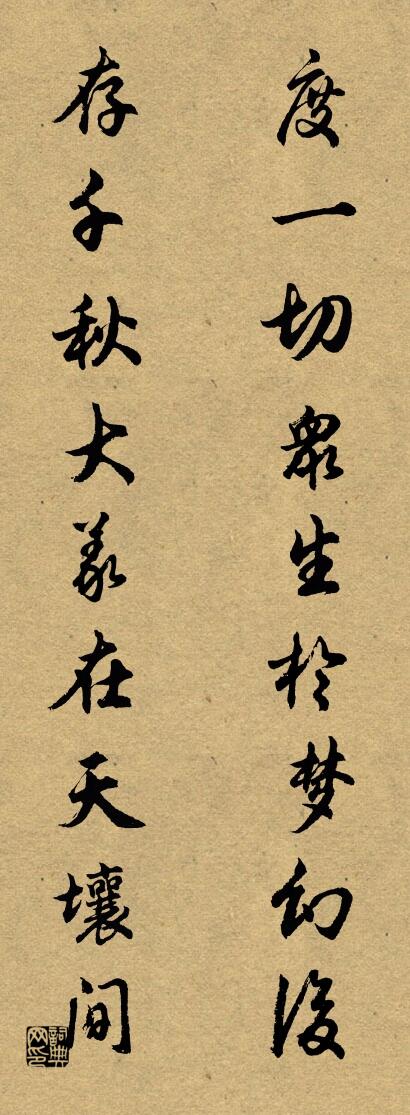 度一切眾生於梦幻後
存千秋大義在天壤间
詞典网印